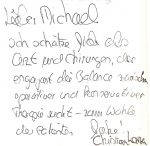 Lieber Michael
ich schätze Dich als
Arzt und Chirurgen, der
engagiert die Balance zwischen
operativer und konservativer
Therapie sucht - zum Wohle
des Patienten
Christian